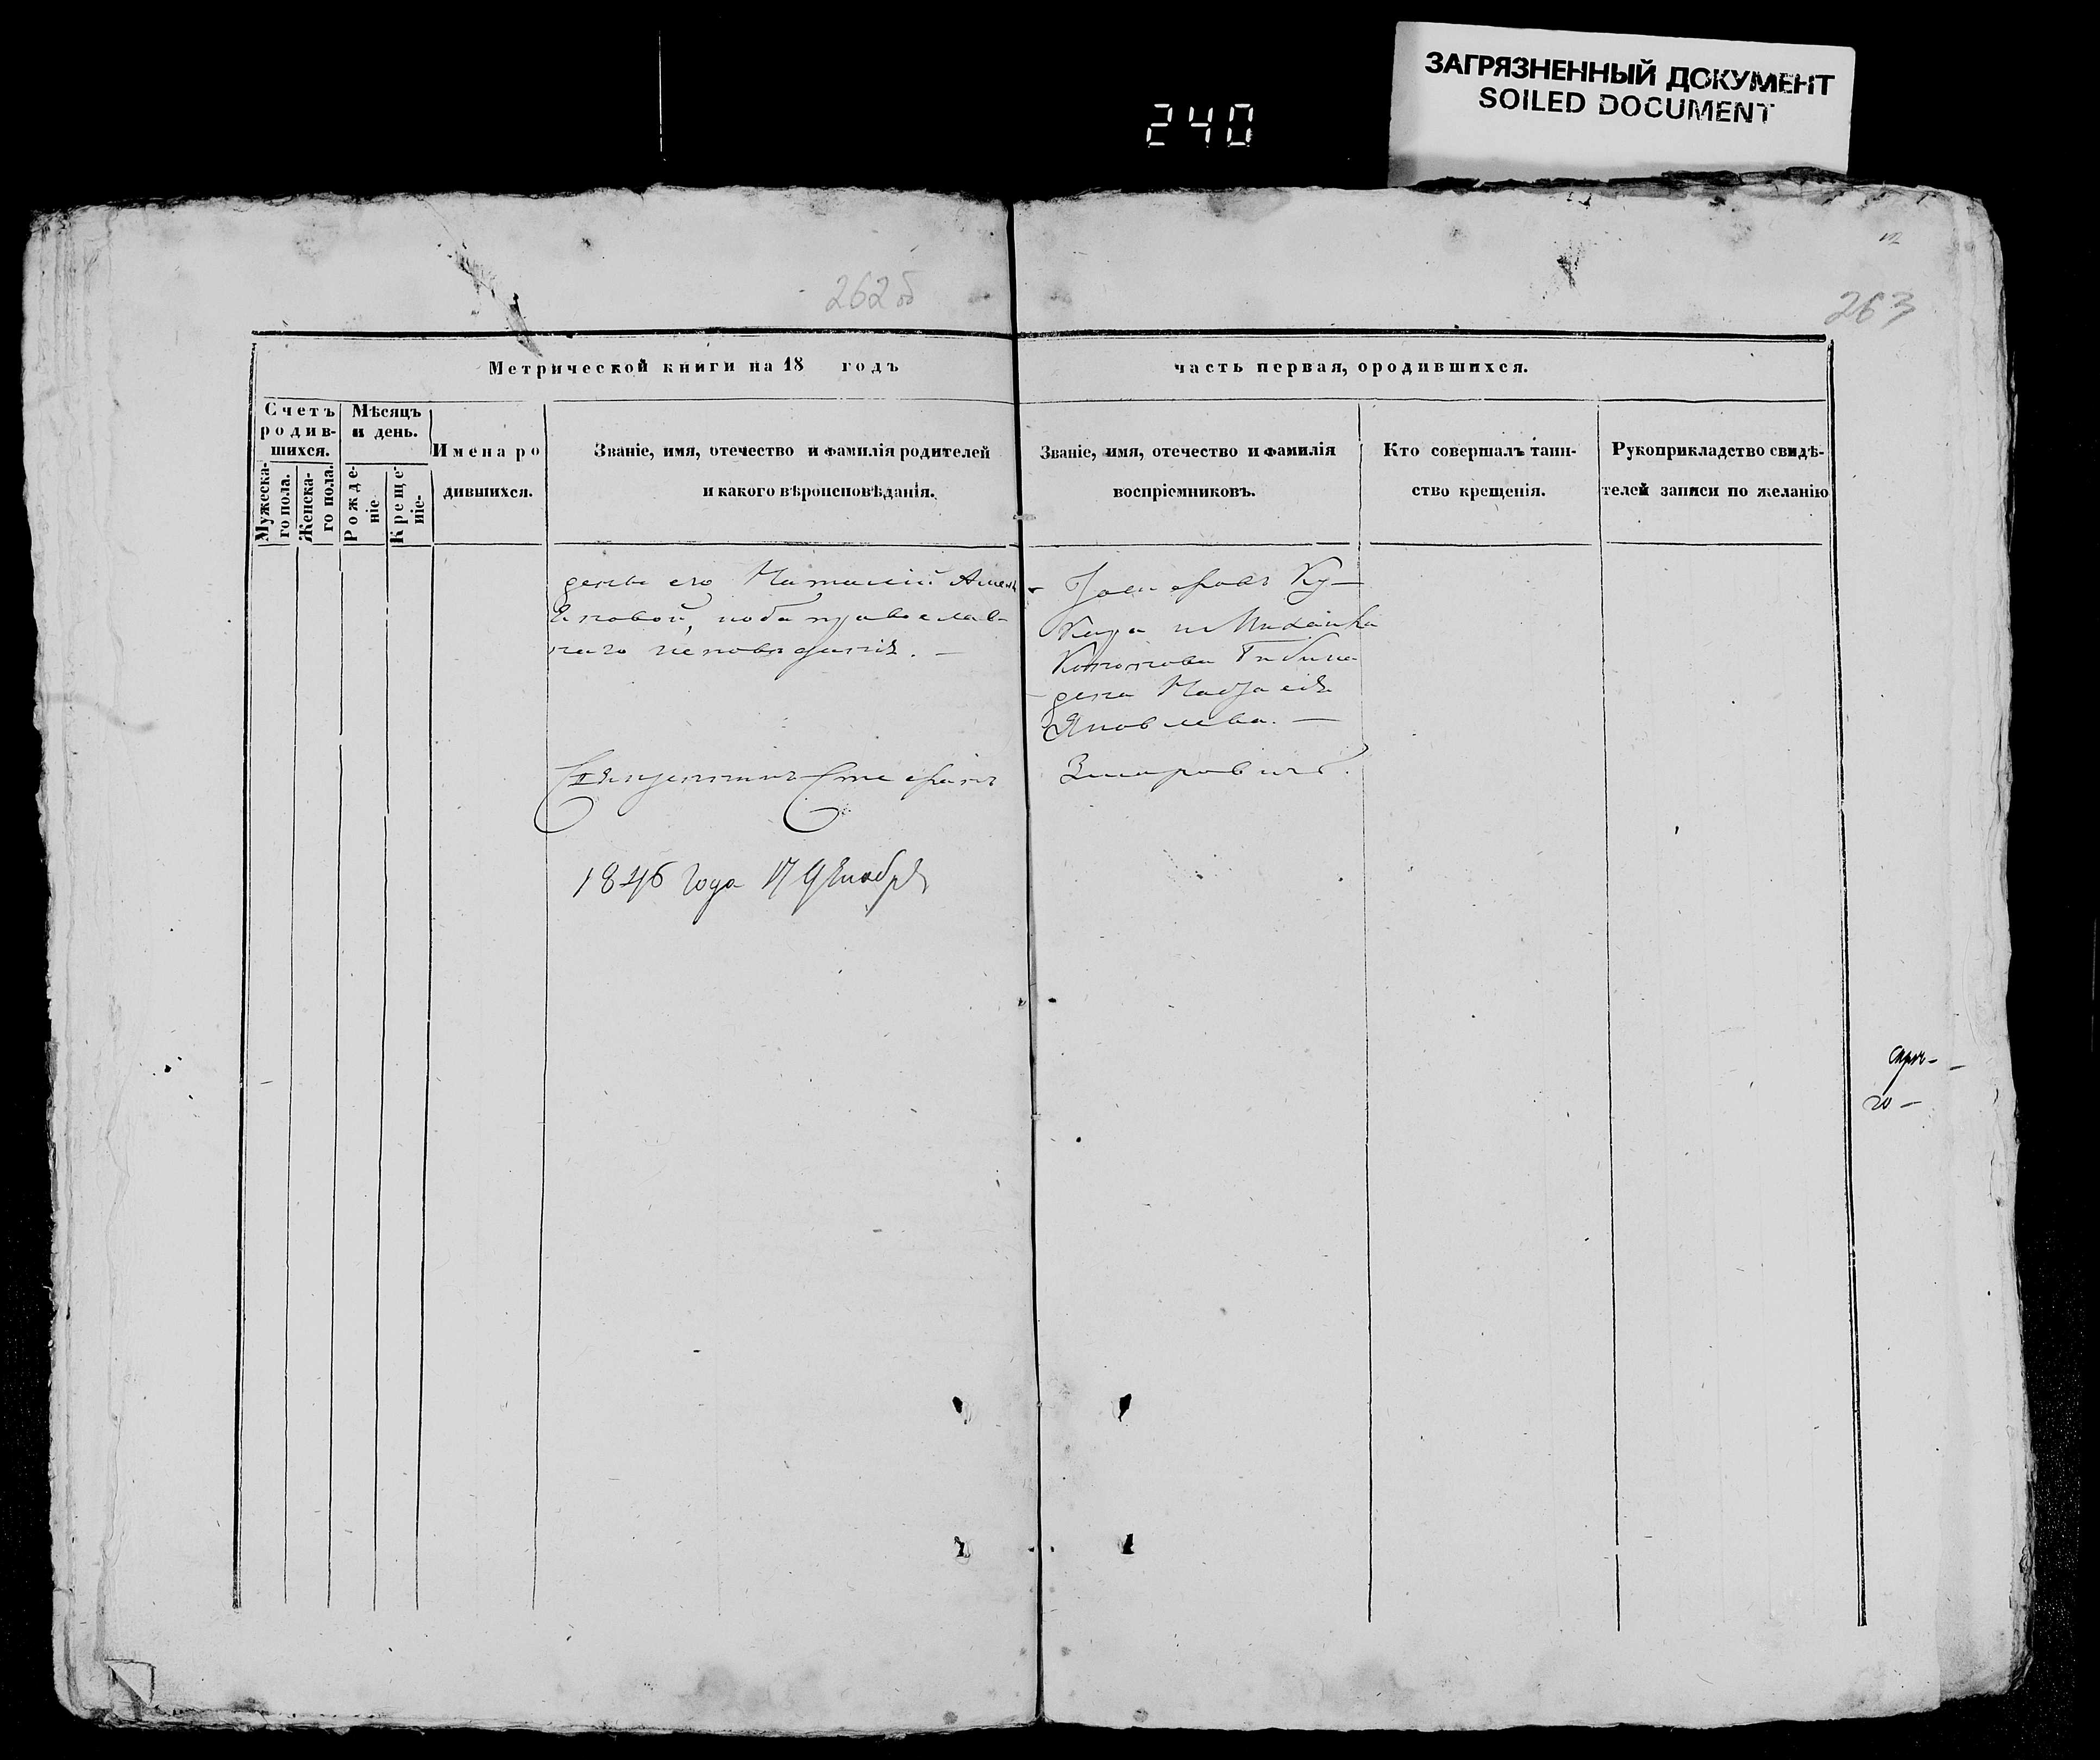 ЗАГРЯЗНЕННЫЙ ДОКУМЕНТ
SOILED DOCUMENT
240
262 об
263
Метрической книги на 18 годъ
часть первая, ородившихся.
Счетъ родив-шихся.
Мужеска-го пола.
Женска-го пола.
Мѣсяцъ и день.
Рожде-ніе
Креще-ніе-
Имена ро
дившихся.
Званіе, имя, отечество и фамилія родителей
и какого вѣроисповѣданія.
Званіе, имя, отечество и фамилія
воспріемниковъ.
Кто совершалъ таин-
ство крещенія.
Рукоприкладство свидѣ-
телей записи по желанію
жены его Наталіи
православ-
наго исповѣданія. —
Ку—
и Михаила
Кононова
жена
Яковлева. —
Священникъ Стефанъ
1846 года 17 Декабря